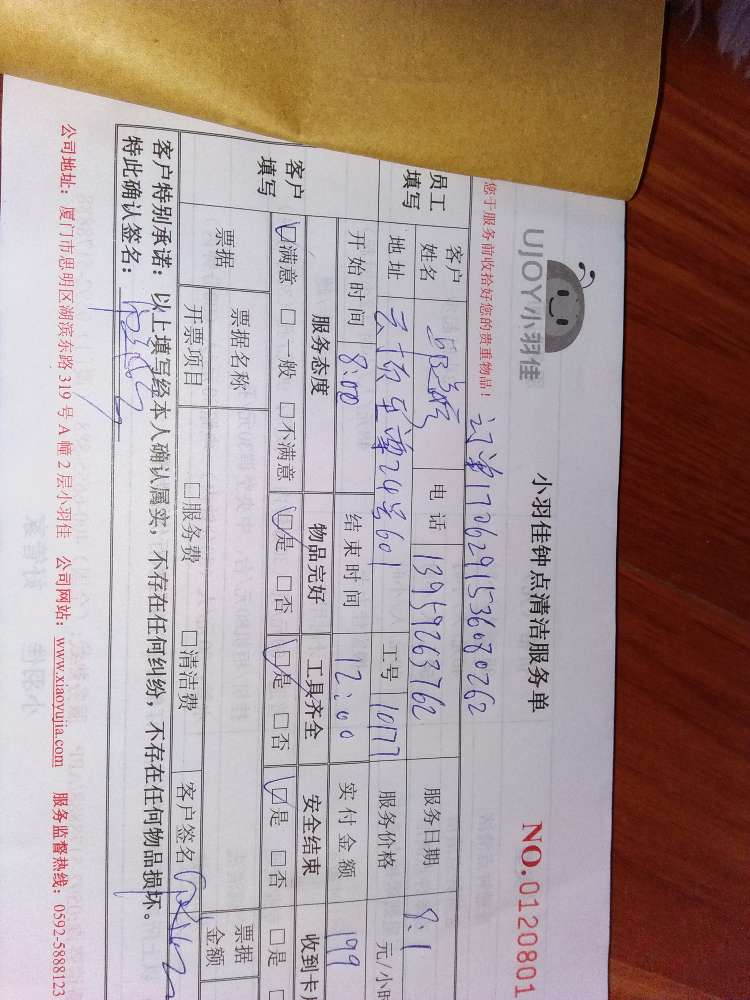 UJOY小羽佳
小羽佳钟点清洁服务单
NO.0120801
您于服务前收拾好您的贵重物品！ 订单1706291536080262
员工填写 客户姓名 电话 13959263762 服务日期 8.1
地址 云顶至尊24号601 工号 10177 服务价格 元/小时
开始时间 8:00 结束时间 12:00 实付金额 199
客户填写 服务态度 物品完好 工具齐全 安全结束 收到卡
☑满意 □一般 □不满意 ☑是 □否 ☑是 □否 ☑是 □否 □是
票据 票据名称 票据金额
开票项目 □服务费 □清洁费 客户签名
客户特别承诺：以上填写经本人确认属实，不存在任何纠纷，不存在任何物品损坏。
特此确认签名：
公司地址：厦门市思明区湖滨东路 319 号 A 幢 2 层小羽佳 公司网站：www.xiaoyujia.com 服务监督热线：0592-5888123